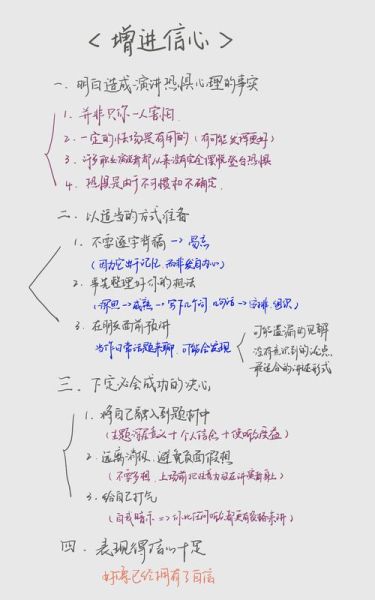 <增进信心>
一、明白造成演讲恐惧心理的事实
1. 并非只你一人害怕.
2. 一定的怯场是有用的(有可能发挥更好)
3. 许多职业演说者都从来没有完全摆脱登台恐惧
4. 恐惧是由于不习惯和不确定.
二、以适当的方式准备
1. 不要逐字背稿→易忘
(因为它出于记忆,而非发自内心)
2. 事先整理好你的想法
(深思→成熟→写下几个词 几句话→安排、组织)
3. 在朋友面前预讲
当作日常话题来聊,可能会发现
可能遗漏的见解
没有意识到的论点
最适合的讲述形式
三、下定必会成功的决心
1. 将自己融入到题材中
(主题深层意义+个人信念+使听众受益)
2. 远离消极、避免负面假想
(不要多想,上场前把注意力放在讲演者身上)
3. 给自己打气
(自我暗示=>你比任何听众都更有资格来讲)
四、表现得信心十足
好像已经拥有了自信